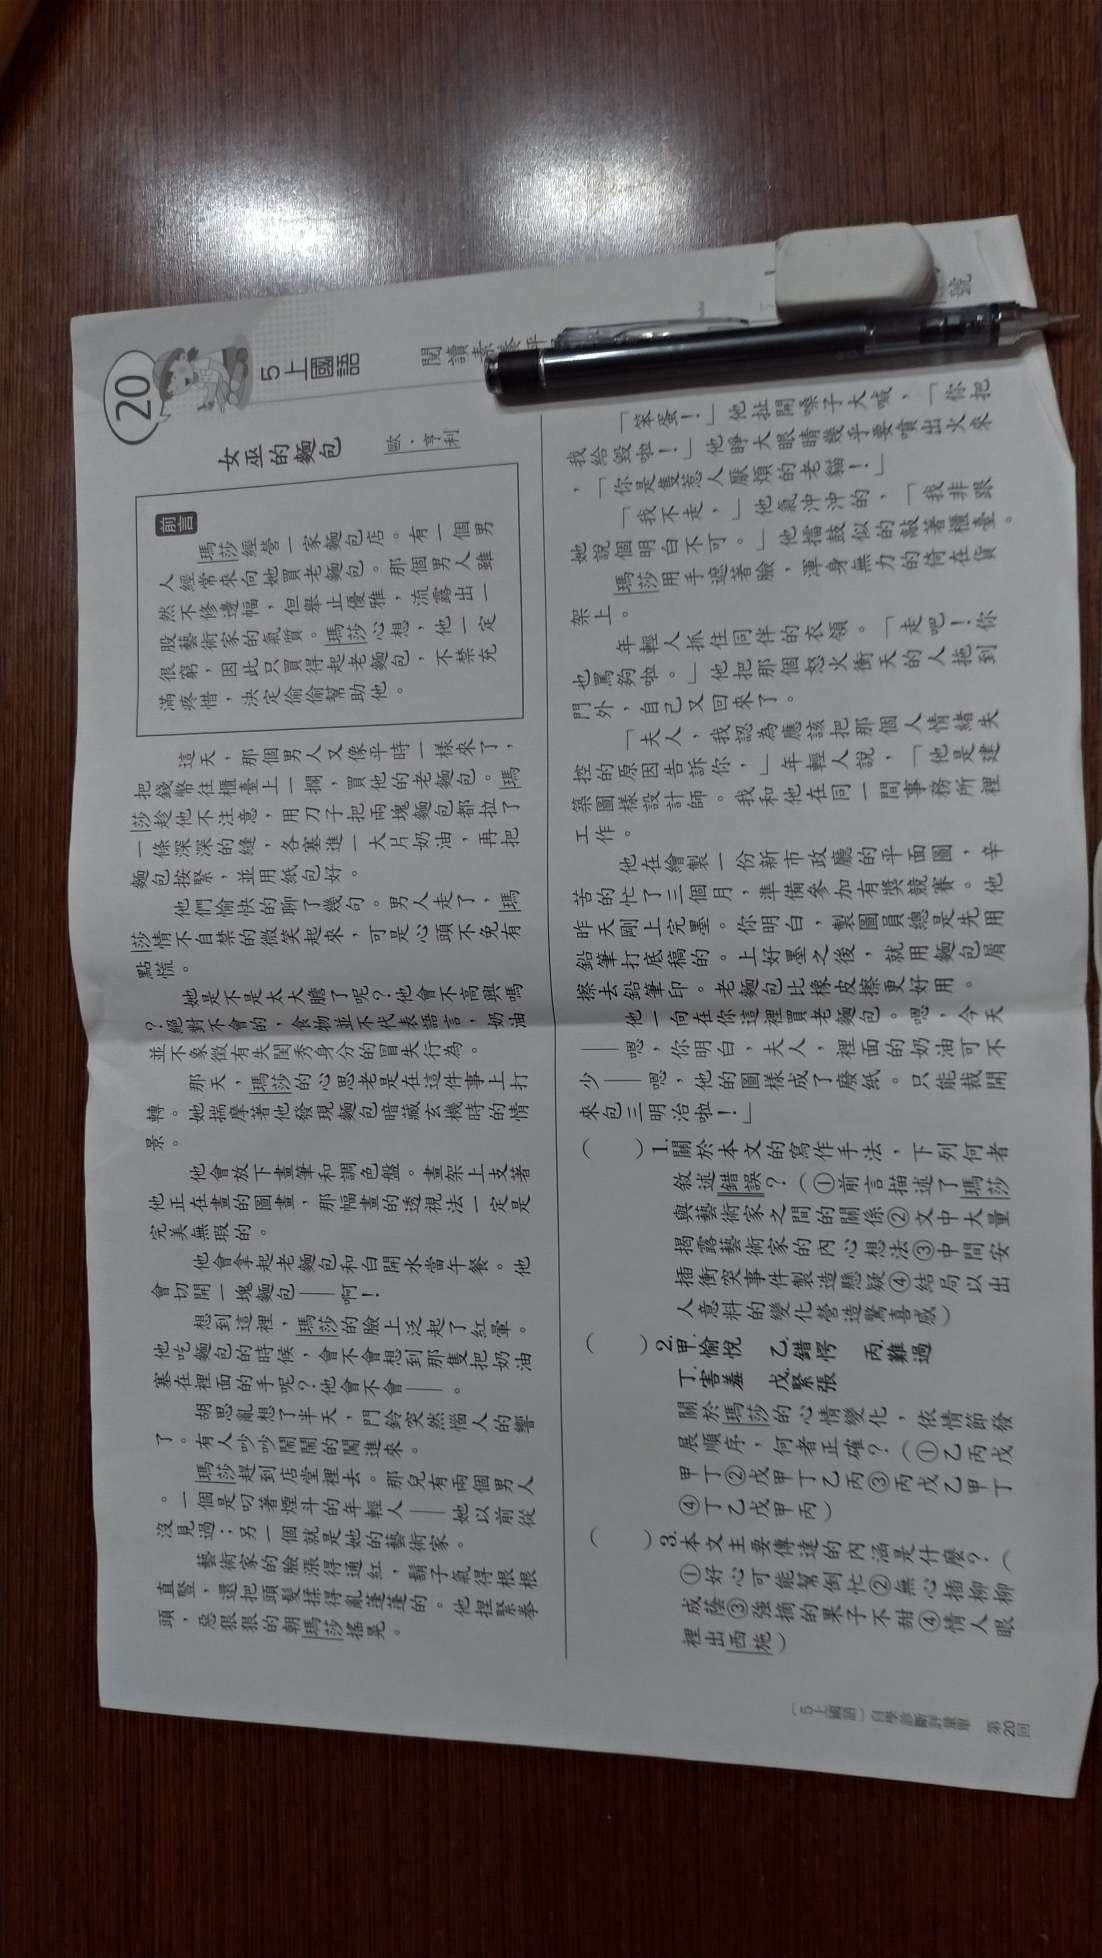 20
5上國語
閱讀素養評
號
女巫的麵包
歐·亨利
前言
瑪莎經營一家麵包店。有一個男
人經常來向她買老麵包。那個男人雖
然不修邊幅，但舉止優雅，流露出一
股藝術家的氣質。瑪莎心想，他一定
很窮，因此只買得起老麵包，不禁充
滿疼惜，決定偷偷幫助他。
這天，那個男人又像平時一樣來了，
把錢幣往櫃臺上一擱，買他的老麵包。瑪
莎趁他不注意，用刀子把兩塊麵包都拉了
一條深深的縫，各塞進一大片奶油，再把
麵包按緊，並用紙包好。
他們愉快的聊了幾句。男人走了，瑪
莎情不自禁的微笑起來，可是心頭不免有
點慌。
她是不是太大膽了呢？他會不高興嗎
？絕對不會的，食物並不代表語言，奶油
並不象徵有失閨秀身分的冒失行為。
那天，瑪莎的心思老是在這件事上打
轉。她揣摩著他發現麵包暗藏玄機時的情
景。
他會放下畫筆和調色盤。畫架上支著
他正在畫的圖畫，那幅畫的透視法一定是
完美無瑕的。
他會拿起老麵包和白開水當午餐。他
會切開一塊麵包——啊！
想到這裡，瑪莎的臉上泛起了紅暈。
他吃麵包的時候，會不會想到那隻把奶油
塞在裡面的手呢？他會不會——。
胡思亂想了半天，門鈴突然惱人的響
了。有人吵吵鬧鬧的闖進來。
瑪莎趕到店堂裡去。那兒有兩個男人
。一個是叼著煙斗的年輕人——她以前從
沒見過；另一個就是她的藝術家。
藝術家的臉漲得通紅，鬍子氣得根根
直豎，還把頭髮揉得亂蓬蓬的。他捏緊拳
頭，惡狠狠的朝瑪莎搖晃。
「笨蛋！」他扯開嗓子大喊，「你把
我給毀啦！」他睜大眼睛幾乎要噴出火來
，「你是隻惹人厭煩的老貓！」
「我不走，」他氣沖沖的，「我非跟
她說個明白不可。」他擂鼓似的敲著櫃臺。
瑪莎用手遮著臉，渾身無力的倚在貨
架上。
年輕人抓住同伴的衣領。「走吧！你
也罵夠啦。」他把那個怒火衝天的人拖到
門外，自己又回來了。
「夫人，我認為應該把那個人情緒失
控的原因告訴你，」年輕人說，「他是建
築圖樣設計師。我和他在同一間事務所裡
工作。
他在繪製一份新市政廳的平面圖，辛
苦的忙了三個月，準備參加有獎競賽。他
昨天剛上完墨。你明白，製圖員總是先用
鉛筆打底稿的。上好墨之後，就用麵包屑
擦去鉛筆印。老麵包比橡皮擦更好用。
他一向在你這裡買老麵包。嗯，今天
——嗯，你明白，夫人，裡面的奶油可不
少——嗯，他的圖樣成了廢紙。只能裁開
來包三明治啦！」
（　　）1.關於本文的寫作手法，下列何者
敘述錯誤？（①前言描述了瑪莎
與藝術家之間的關係②文中大量
揭露藝術家的內心想法③中間安
插衝突事件製造懸疑④結局以出
人意料的變化營造驚喜感）
（　　）2.甲.愉悅　乙.錯愕　丙.難過
丁.害羞　戊.緊張
關於瑪莎的心情變化，依情節發
展順序，何者正確？（①乙丙戊
甲丁②戊甲丁乙丙③丙戊乙甲丁
④丁乙戊甲丙）
（　　）3.本文主要傳達的內涵是什麼？（
①好心可能幫倒忙②無心插柳柳
成蔭③強摘的果子不甜④情人眼
裡出西施）
（5上國語）自學診斷評量單　第20回